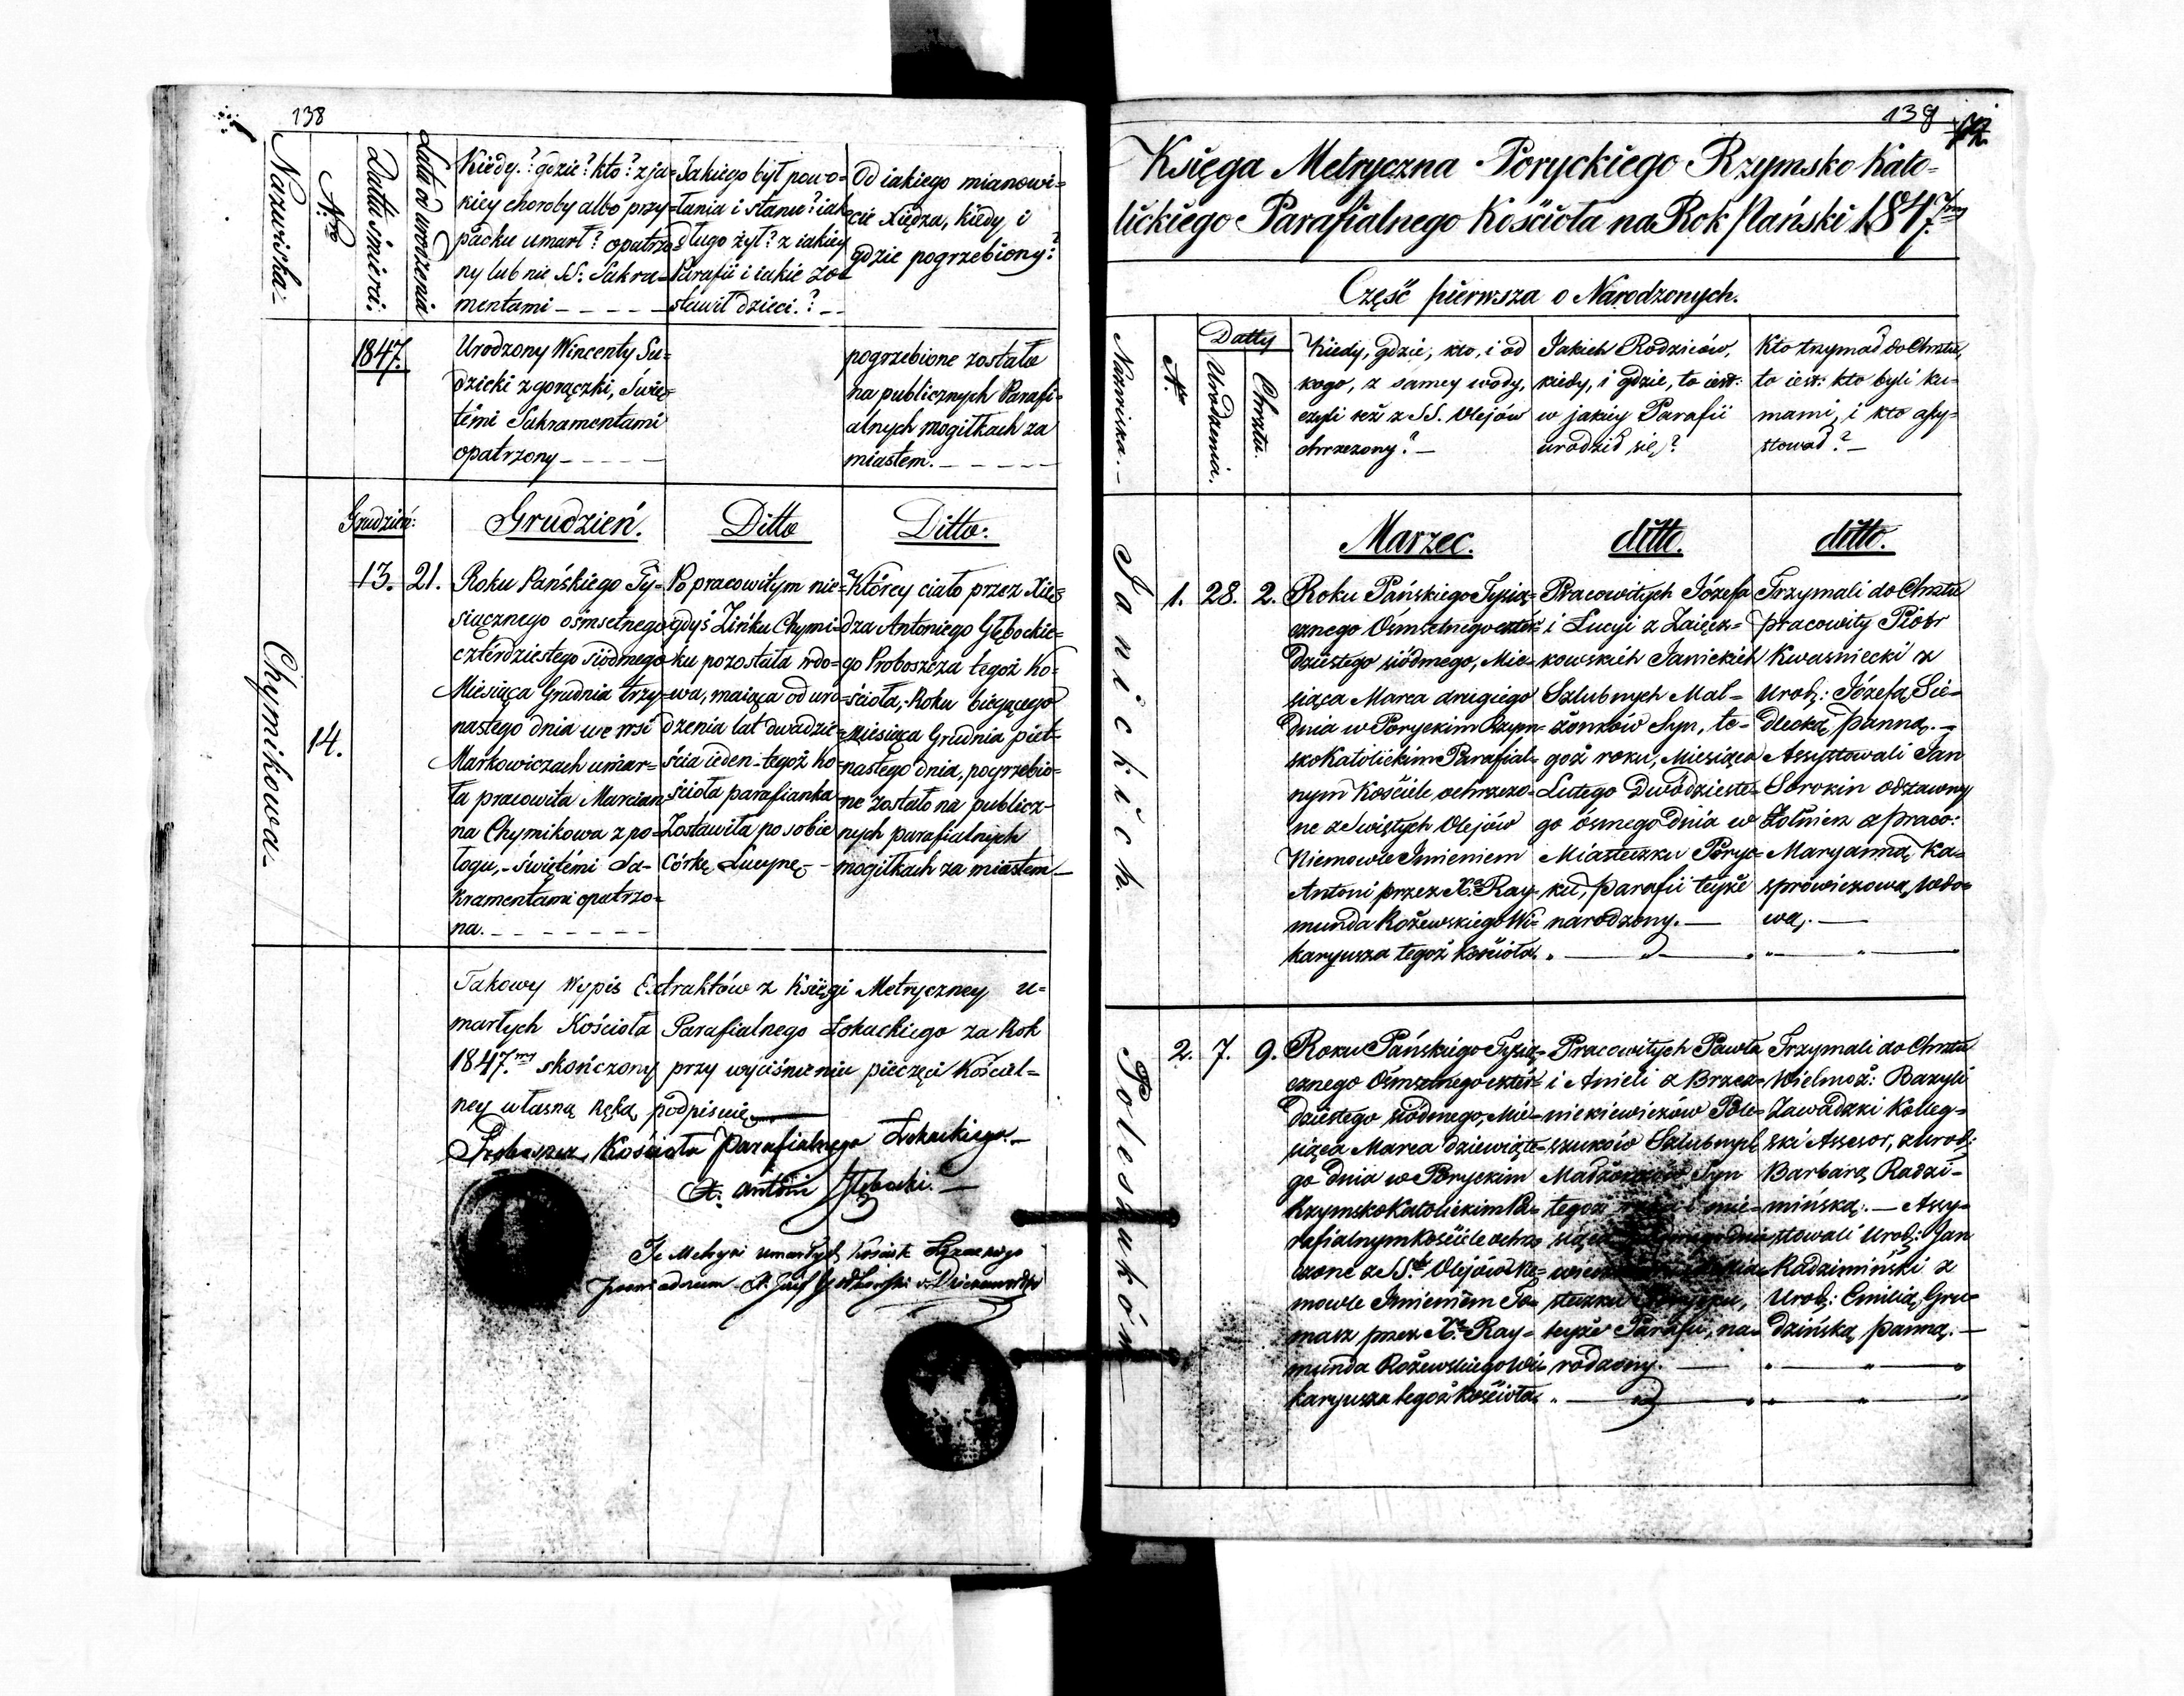 138
Nazwiska.
Nro
Datta śmierci.
Lata od urodzenia
Kiedy? gdzie? kto? z ja=
kiey choroby albo przy=
padku umarł? opatrzo=
ny lub nie SS. Sakra=
mentami
Jakiego był powo=
łania i stanu? iak
długo żył? z iakiey
Parafii i iakie zo=
stawił dzieci?
Od iakiego mianowi=
cie Xiędza, kiedy i
gdzie pogrzebiony?
1847.
Urodzony Wincenty Su=
dzicki z gorączki, Świę=
témi Sakramentami
opatrzony
pogrzebione zostało
na publicznych Parafi=
alnych mogiłkach za
miastem.
Grudzień:
Grudzień.
Ditto
Ditto:
Chymikowa
14.
13.
21.
Roku Pańskiego Ty=
siącznego ośmsetnego
cztérdziestego siódmego
Miesiąca Grudnia trzy=
nastego dnia we wsi
Markowiczach umar=
ła pracowita Marcian=
na Chymikowa z po=
łogu, świętémi Sa=
kramentami opatrzo=
na.
Po pracowitym nie=
gdyś Zińku Chymi=
ku pozostała wdo=
wa, maiąca od uro=
dzenia lat dwadzie=
ścia ieden tegoż Ko=
ścioła parafianka
Zostawiła po sobie
Córkę Lucynę
Którey ciało przez Xię=
dza Antoniego Głębockie=
go Proboszcza tegoż Ko=
ścioła, Roku bieżącego
Miesiąca Grudnia piet=
nastego dnia, pogrzebio=
ne zostało na publicz=
nych parafialnych
mogiłkach za miastem
Takowy Wypis Extraktów z Księgi Metryczney u=
marłych Kościoła Parafialnego Łokackiego za Rok
1847.my skończony przy wyciśnieniu pieczęci Kościel=
ney własną ręką podpisuię
Proboszcz Kościoła Parafialnego Łokackiego
X. Antoni Głębocki.
Te Metryki umarłych Kościoła
139
Księga Metryczna Poryckiego Rzymsko Kato=
lickiego Parafialnego Kościoła na Rok Pański 1847.my
Część pierwsza o Narodzonych.
Nazwiska.
Nro
Datty
Urodzenia.
Chrztu.
Kiedy, gdzie, kto, i od
kogo, z samey wody,
czyli też z SS. Olejów
chrzczony?
Jakich Rodziców,
kiedy, i gdzie, to iest:
w jakiey Parafii
urodził się?
Kto trzymał do Chrztu,
to iest: kto byli ku=
mami, i kto assy=
stował?
Marzec.
ditto.
ditto.
Janickich.
1.
28.
2.
Roku Pańskiego Tysią=
cznego Ośmsetnego czter=
dziestego siódmego, Mie=
siąca Marca drugiego
dnia w Poryckim Rzym=
sko Katolickim Parafial=
nym Kościele ochrzczo=
ne z Świętych Olejów
Niemowle Imieniem
Antoni przez Xa Ray=
munda Rożewskiego Wi=
karyusza tegoż Kościoła.
Pracowitych Józefa
i Lucyi z Zaiącz=
kowskich Janickich
Szlubnych Mał=
żonków Syn, te=
goż roku, Miesiąca
Lutego Dwódzieste=
go ósmego dnia w
Miasteczku Poryc=
ku, parafii teyże
narodzony.
Trzymali do Chrztu
pracowity Piotr
Kwasniecki z
Urodz: Józefą Sie=
dlecką panną.
Assystowali Jan
Sorokin odstawny
Żołnierz z praco:
Maryanną Ka=
sprowiczową wdo=
wą.
Poleszuków
2.
7.
9.
Roku Pańskiego Tysią=
cznego Ośmsetnego czter=
dziestego siódmego, Mie=
siąca Marca dziewiąte=
go dnia w Poryckim
Rzymsko Katolickim Pa=
rafialnym Kościele ochrz=
czone z SS.tch Olejów Nie=
mowle Imieniem To=
masz przez Xa Ray=
munda Rożewskiego Wi=
karyusza tegoż Kościoła.
Pracowitych Pawła
i Anieli z Brzez=
nickiewiczów Pole=
szuków Szlubnych
Małżonków Syn
tegoż roku i mie=
siąca
steczku Porycku,
teyże Parafii, na=
rodzony.
Trzymali do Chrztu
Wielmoż: Bazyli
Zawadzki Kolleg=
ski Assesor, z urodz:
Barbarą Radzi=
mińską. Assy=
stowali Urodz: Jan
Radzimiński z
Urodz: Emilią Gru=
dzińską panną.